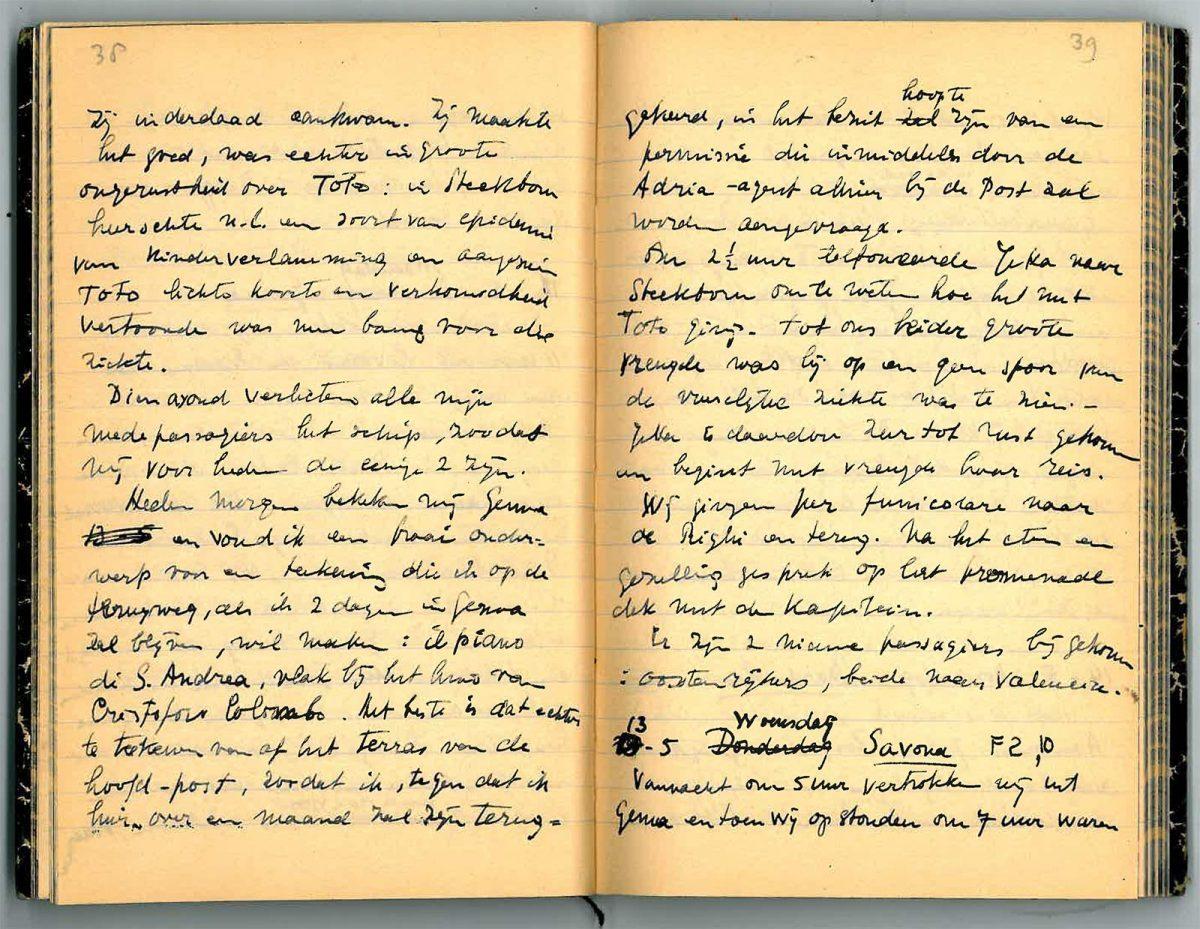 38
Zij inderdaad aankwam. Zij maakte
het goed, was echter in groote
ongerustheid over Toto: in Steckborn
heerschte n.l. een soort van epidemie
van Kinderverlamming en aangezien
Toto lichte koorts en verkoudheid
vertoonde was men bang voor die
ziekte.
Dien avond verlieten alle mijn
medepassagiers het schip, zoodat
wij voor heden de eenige 2 zijn.
Heden morgen bekeken wij Genua
en vond ik een fraai onder=
werp voor een teekening die ik op de
terugweg, als ik 2 dagen in Genua
zal blijven, wil maken: il piano
di S. Andrea, vlak bij het huis van
Cristoforo Colombo. Het beste is dat echter
te teekenen van af het terras van de
hoofd-post, zoodat ik, tegen dat ik
hier over een maand zal zijn terug=
39
gekeerd, in het bezit zal hoopte zijn van een
permissie die inmiddels door de
Adria-agent alhier bij de Post zal
worden aangevraagd.
Om 2½ uur telefoneerde Jetta naar
Steckborn om te weten hoe het met
Toto ging. Tot ons beider groote
vreugde was hij op en geen spoor van
de vreeselijke ziekte was te zien.-
Jetta is daardoor zeer tot rust gekomen
en begint met vreugde haar reis.
Wij gingen per funicolare naar
de Righi en terug. Na het eten een
gezellig gesprek op het promenade
dek met den Kapitein.
Er zijn 2 nieuwe passagiers bij gekomen
: oostenrijkers, beide naar Valencia.
13-5 Donderdag Woensdag Savona F 2,10
Vannacht om 5 uur vertrokken wij uit
Genua en toen wij opstonden om 7 uur waren